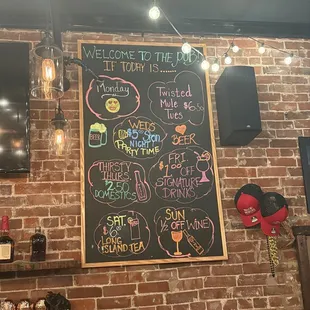 WELCOME TO THE PUB!
IF TODAY IS ......
Monday
Twisted
Mule $6.50
Tues
WEDS
$5
NIGHT
PARTY TIME
BEER
FRI
$1 OFF
SIGNATURE
DRINKS
THIRSTY
THURS
$2.50
DOMESTICS
SAT
$6
LONG
ISLAND TEA
SUN
1/2 OFF WINE